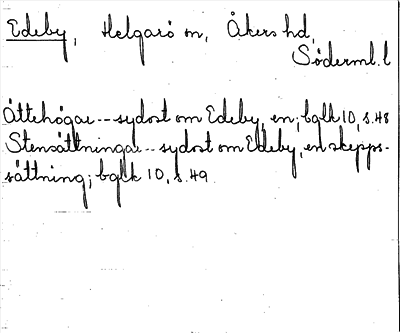 Edeby, Helgarö sn, Åkers hd,
Söderml. l
Ättehögar -- sydost om Edeby, en; bglk 10, s. 48
Stensättningar -- sydost om Edeby, en skepps-
sättning; bglk 10, s. 49